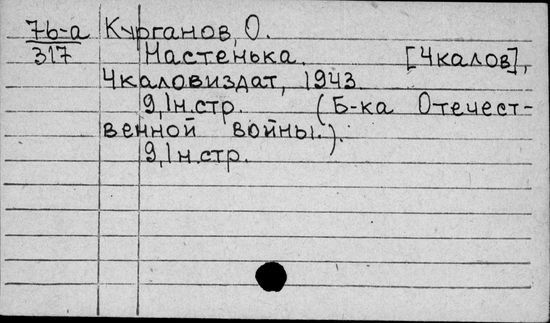 7б-а Курганов, О.
317 Настенька. [Чкалов],
Чкаловиздат, 1943.
9,1н.стр. (Б-ка Отечест-
венной войны.).
9,1н.стр.